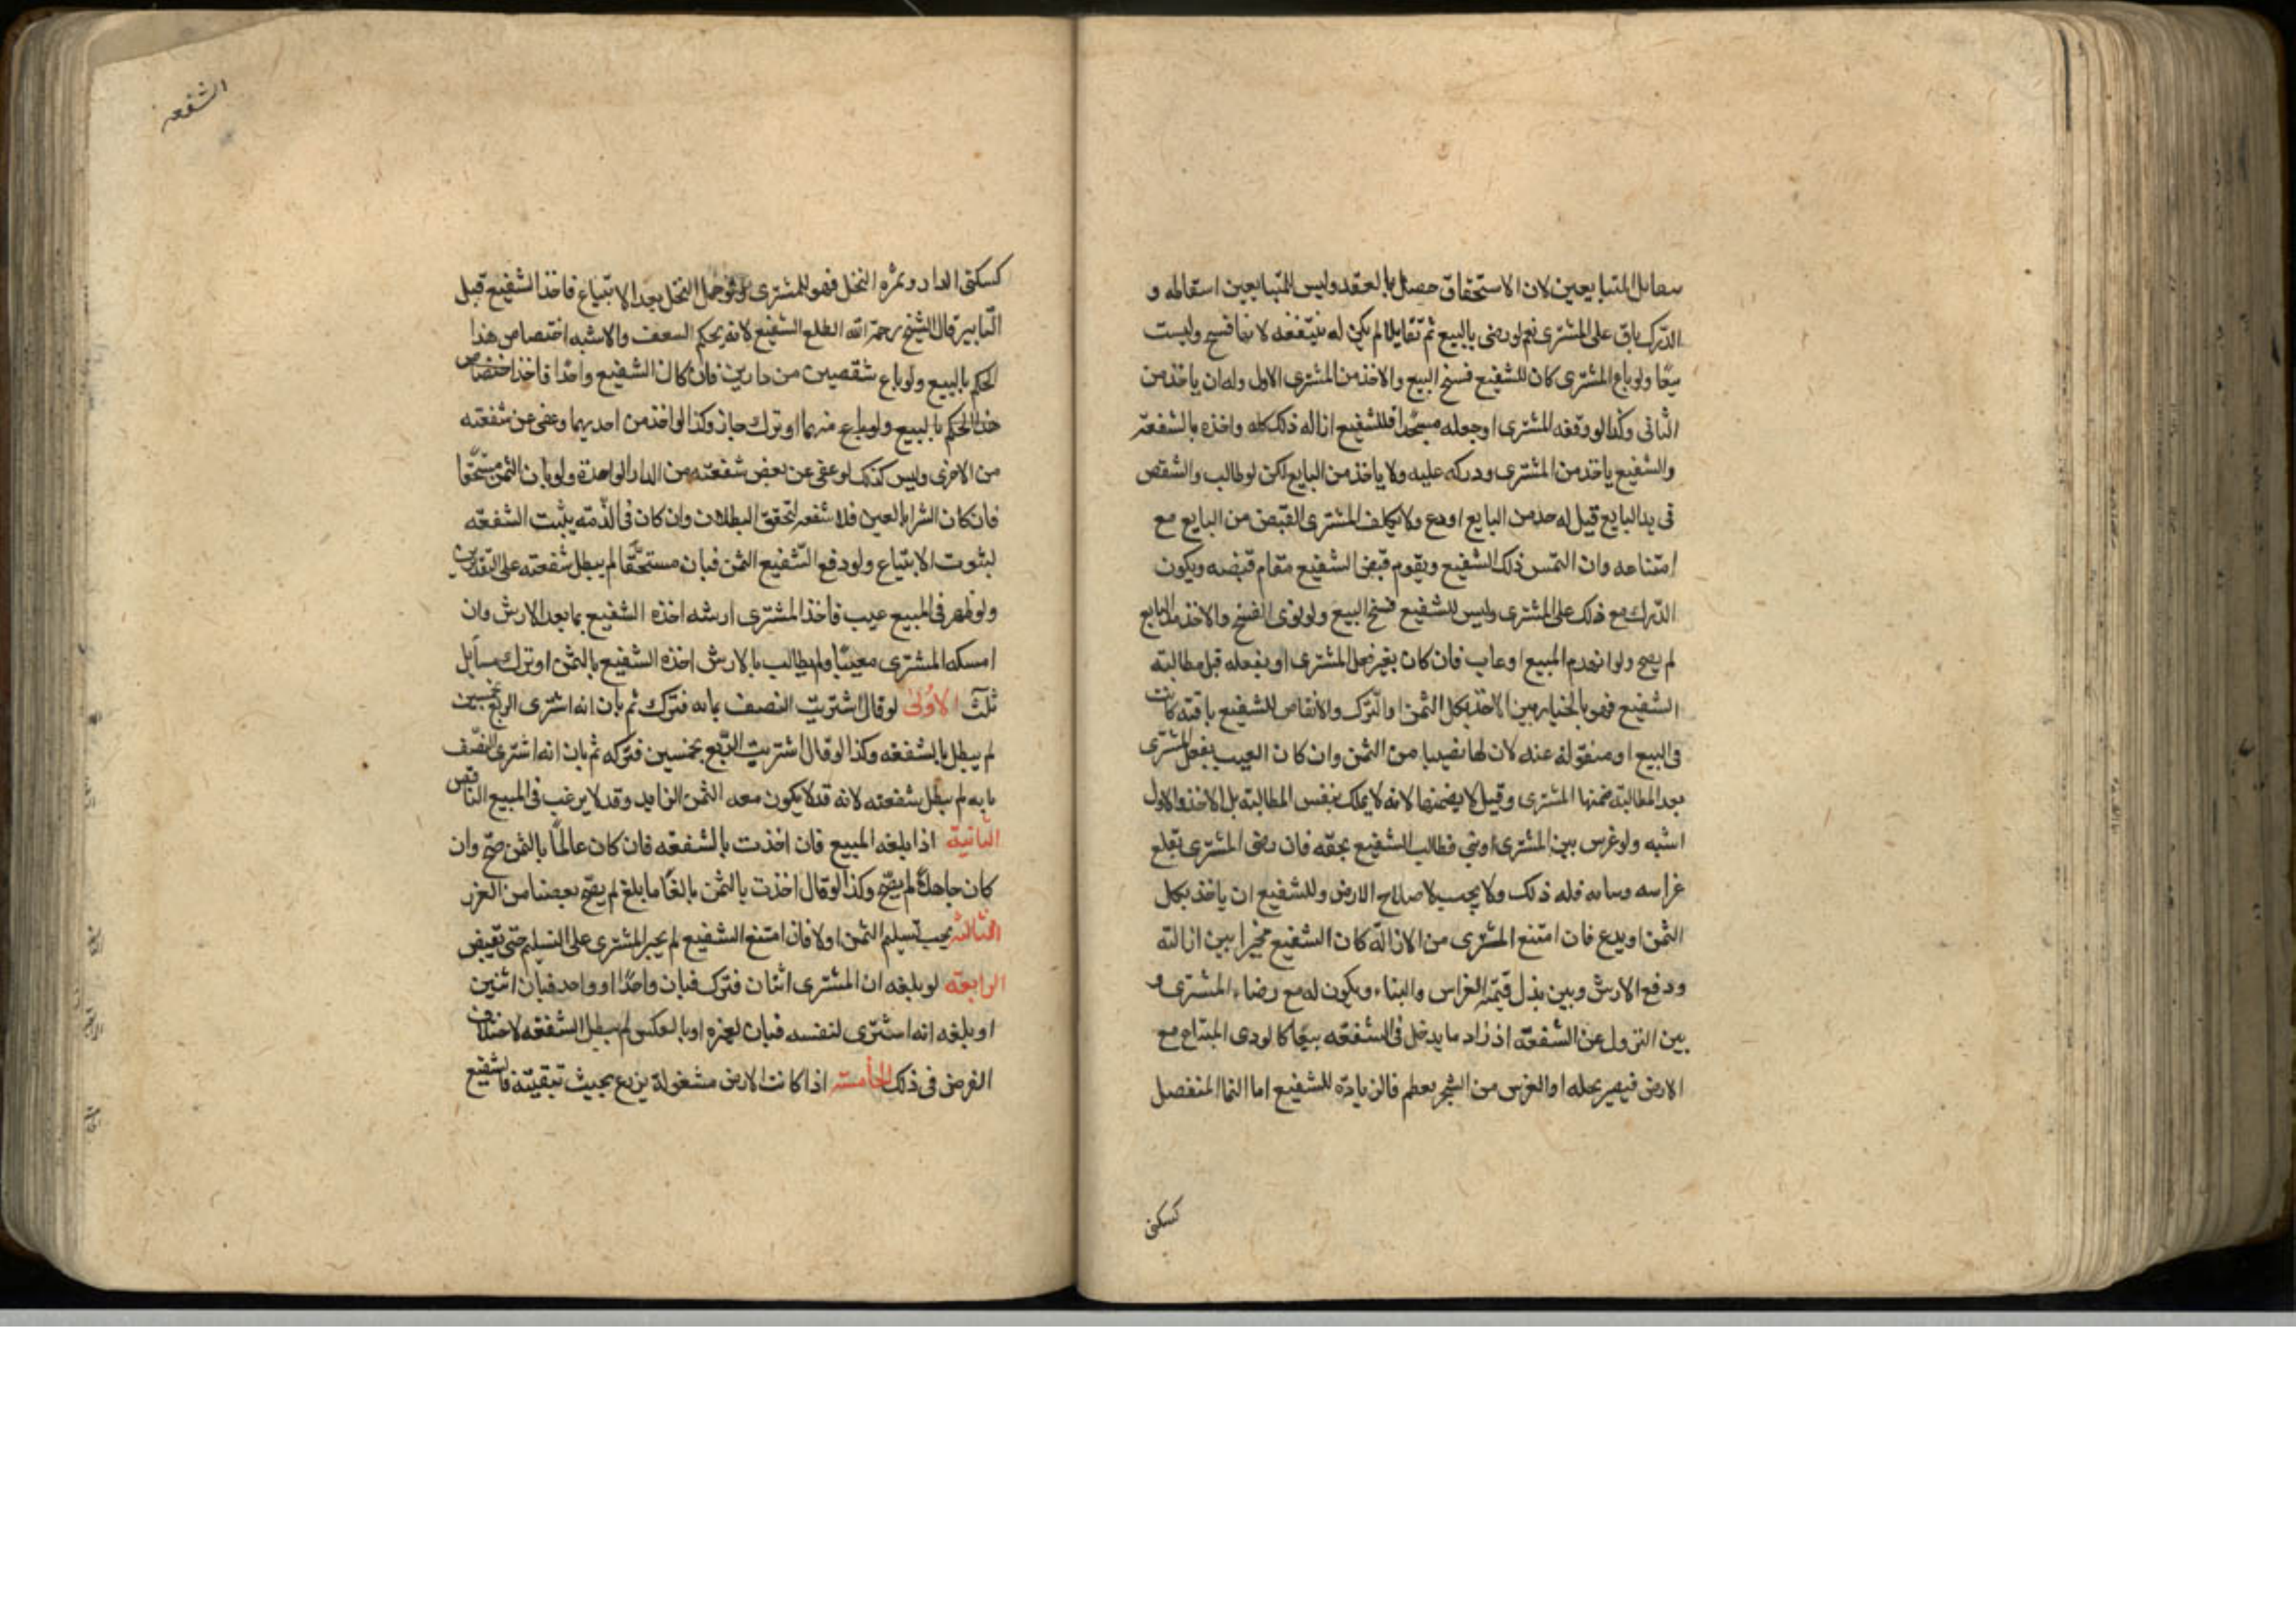 بتقابل المتبايعين لان الاستحقاق حصل بالعقد وليس للمتبايعين اسقاطه و
الدّرك باق على المشترى نعم لو رضى بالبيع ثم تقايلا لم يكن له شفعه لانها فسخ وليست
بيعًا ولو باع المشترى كان للشفيع فسخ البيع والاخذ من المشترى الاول وله ان ياخذ من
الثانى وكذا لو وقفه المشترى او جعله مسجدًا فللشفيع ازاله ذلك كله واخذه بالشفعة
والشفيع ياخذ من المشترى ودركه عليه ولا ياخذ من البايع لكن لو طالب والشقص
فى يد البايع قيل له خذ من البايع او دع ولا يكلف المشترى القبض من البايع مع
امتناعه وان التمس ذلك الشفيع ويقوم قبض الشفيع مقام قبضه ويكون
الدّرك مع ذلك على المشترى وليس للشفيع فسخ البيع ولو نوى الفسخ والاخذ من البايع
لم يصح ولو انهدم المبيع او عاب فان كان بغير فعل المشترى او بفعله قبل مطالبته
الشفيع فهو بالخيار بين الاخذ بكل الثمن او الترك والانقاض للشفيع باقيه كانت
فى البيع او منقوله عنه لان لها نصيبا من الثمن وان كان العيب بفعل المشترى
بعد المطالبته ضمنها المشترى وقيل لا يضمنها لانه لا يملك بنفس المطالبته بل الاخذ والاول
اشبه ولو غرس بين المشترى او بنى فطالب الشفيع بحقه فان رضى المشترى بقلع
غراسه وبنائه فله ذلك ولا يجب لاصلاح الارض وللشفيع ان ياخذ بكل
الثمن او يدع فان امتنع المشترى من الازالة كان الشفيع مخيرا بين ازالته
ودفع الارش وبين بذل قيمته الغراس والبناء ويكون له مع رضاء المشترى و
بين النزول عن الشفعة اذ زاد ما يدخل فى الشفعه بيعًا كالودى المبتاع مع
الارض فيصير نخله او الغرس من الشجر يعظم فالزيادة للشفيع اما النما المنفصل
كسكنى
الشفعه
كسكنى الدار وثمره النخل فهو للمشترى ولو حمل النخل بعد الابتياع فاخذ الشفيع قبل
التابير قال الشيخ رحمة الله الطلع الشفيع لانه بحكم السعف والاشبه اختصاص هذا
الحكم بالبيع ولو باع شقصين من دارين فان كان الشفيع واحدا فاخذ اختصاص
هذا الحكم بالبيع ولو باع منهما او ترك جاز وكذا لو اخذ من احديهما وعفى عن شفعته
من الاخرى وليس كذلك لو عفى عن بعض شفعته من الدار الواحدة ولو بان الثمن مستحقا
فان كان الشرا بالعين فلا شفعه لتحقق البطلان وان كان فى الذّمته يثبت الشفعته
لثبوت الابتياع ولو دفع الشفيع الثمن فبان مستحقًا لم يبطل شفعته على التقديرين
ولو ظهر فى المبيع عيب فاخذ المشترى ارشه اخذه الشفيع بما بعد الارش وان
امسكه المشترى معيبًا ولم يطالب بالارش اخذه الشفيع بالثمن او ترك مسايل
ثلث الاولى لو قال اشتريت النصف بمايه فترك ثم بان انه اشترى الربع بخمسين
لم يبطل بالشفعه وكذا لو قال اشتريت الربع بخمسين فتركه ثم بان انه اشترى النصف
بمايه لم يبطل شفعته لانه قد لا يكون معه الثمن الزايد وقد لا يرغب فى المبيع الناقص
الثانية اذا بلغه المبيع فان اخذت بالشفعه فان كان عالمًا بالثمن صح وان
كان جاهلاً لم يصح وكذا لو قال اخذت بالثمن بالغًا ما بلغ لم يصح بعضنا من الغرر
الثالثه يجب تسليم الثمن اولا فان امتنع الشفيع لم يجبر المشترى على التسليم حتى يقبض
الرابعة لو بلغه ان المشترى اثنان فترك فبان واحدًا او واحد فبان اثنين
او بلغه انه اشترى لنفسه فبان لغيره او بالعكس لم يبطل الشفعه لاختلاف
الغرض فى ذلك الخامسه اذا كانت الارض مشغولة بزرع بحيث تبقيته فالشفيع